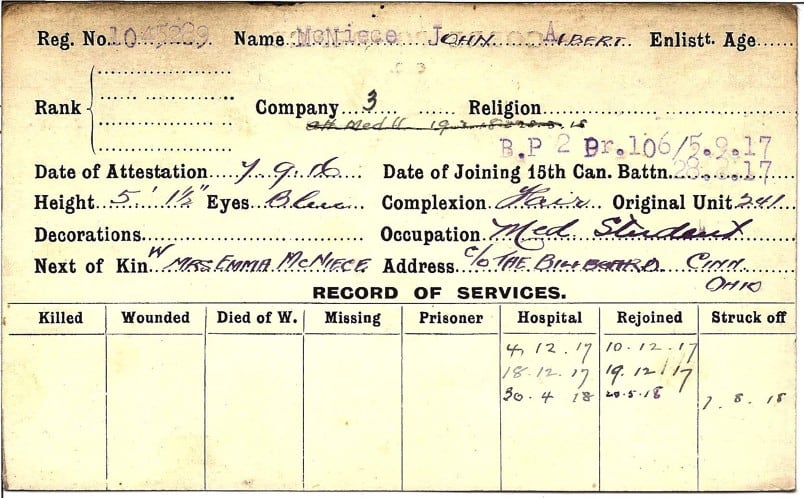 Reg. No. 1045289 Name McNiece JOHN ALBERT Enlistt. Age
Rank Company 3 Religion
att Med 11 19.2.18
B.P 2 Dr. 106/5.9.17
Date of Attestation 7.9.16 Date of Joining 15th Can. Battn.
Height 5' 1½" Eyes Blue Complexion Fair Original Unit 241
Decorations Occupation Med Student
Next of Kin W MRS EMMA McNIECE Address c/o THE BILLBOARD CINN
OHIO
RECORD OF SERVICES.
Killed Wounded Died of W. Missing Prisoner Hospital Rejoined Struck off
4.12.17 10.12.17
18.12.17 19.12.17
30.4.18 20.5.18 7.8.18